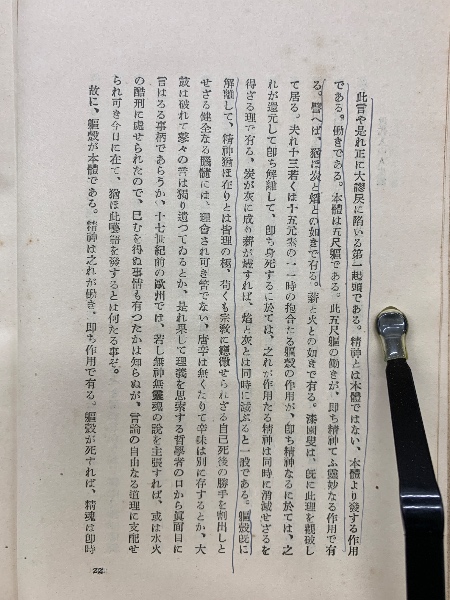 此言や是れ正に大謬戻に陥いる第一起頭である。精神とは本體ではない、本體より發する作用
である。働きである。本體は五尺軀である。此五尺軀の働きが、即ち精神てふ靈妙なる作用で有
る。譬へば、猶ほ炭と焔との如きで有る。薪と火との如きで有る。漆園叟は、既に此理を覷破し
て居る。夫れ十三若くは十五元素の一時の抱合たる軀殼の作用が、即ち精神なるに於ては、之
れが還元して即ち解離して、即ち身死するに於ては、之れが作用たる精神は同時に消滅せざるを
得ざる理で有る。炭が灰に成り薪が燼すれば、焔と火とは同時に滅ぶると一般である。軀殼既に
解離して、精神猶ほ在りとは背理の極、苟くも宗教に癮黴せられざる自己死後の勝手を割出しと
せざる健全なる腦髓には、理會され可き筈でない。唐辛は無くなりて辛味は別に存するとか、太
鼓は破れて鼕々の音は獨り遺つてゐるとか、是れ果して理義を思索する哲學者の口から眞面目に
言はるる事柄であらうか、十七世紀前の歐州では、若し無神無靈魂の説を主張すれば、或は水火
の酷刑に處せられたので、已むを得ぬ事情も有つたかは知らぬが、言論の自由なる道理に支配せ
られ可き今日に在て、猶ほ此囈語を發するとは何たる事ぞ。
故に、軀殼が本體である。精神は之れが働き、即ち作用で有る。軀殼が死すれば、精魂は即時
22